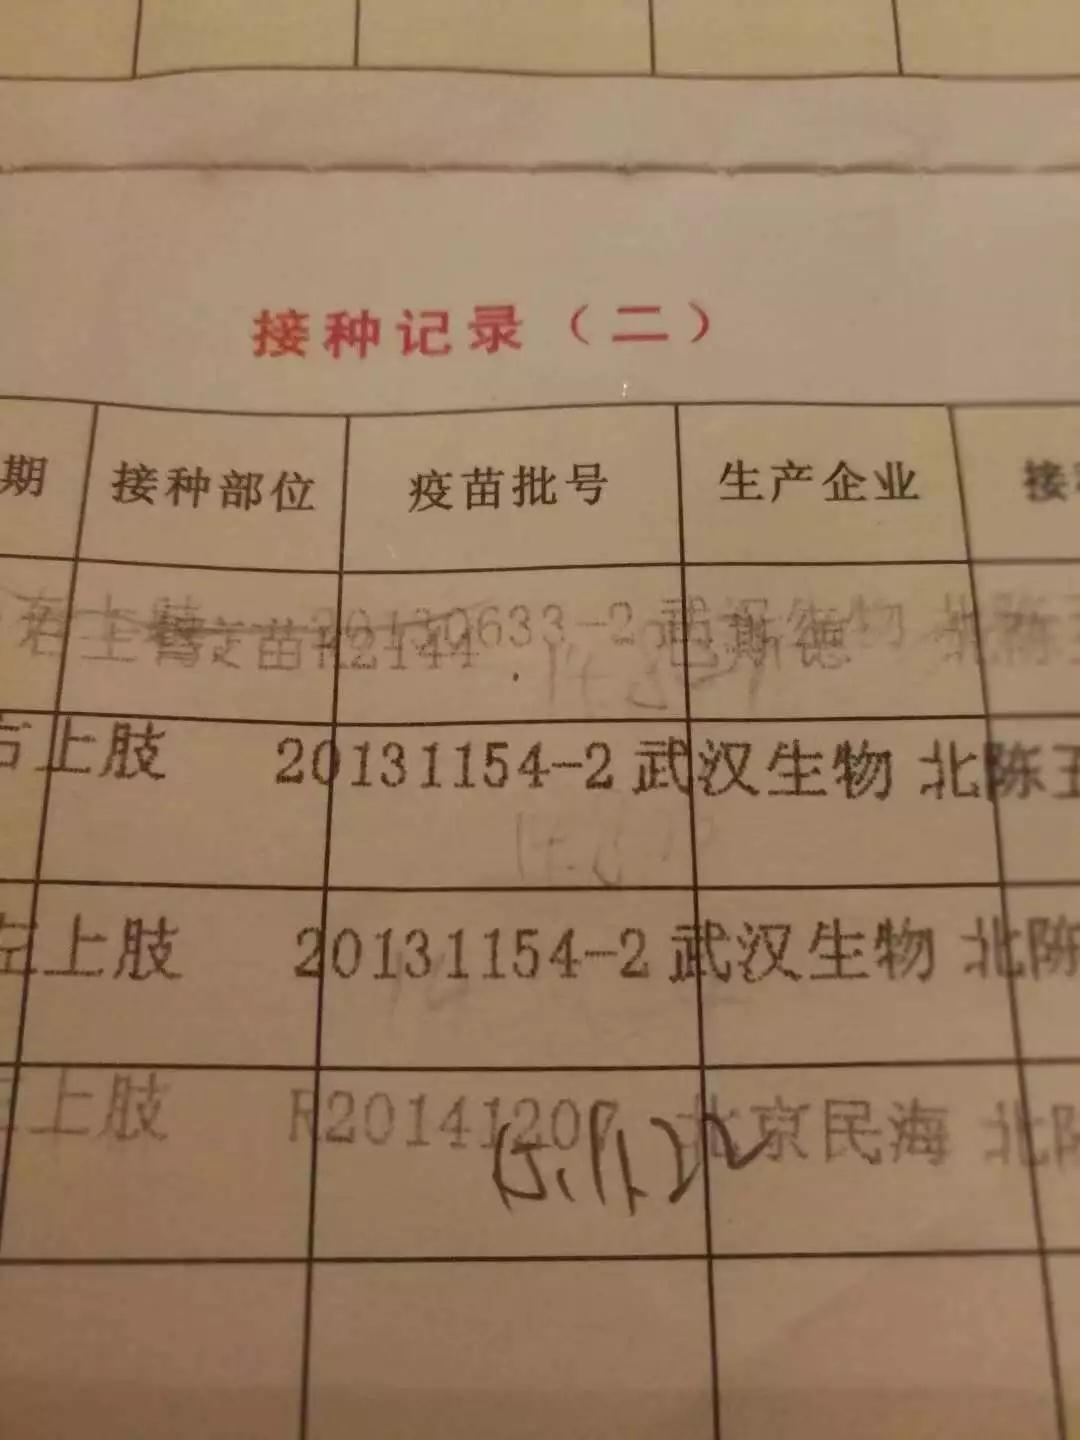 接种记录（二）
期 接种部位 疫苗批号 生产企业 接
上肢 20130633-2 武汉生物 北陈
苗 R2144 巴斯德
右上肢 20131154-2 武汉生物 北陈
左上肢 20131154-2 武汉生物 北陈
上肢 R20141207 北京民海 北
15.11.22